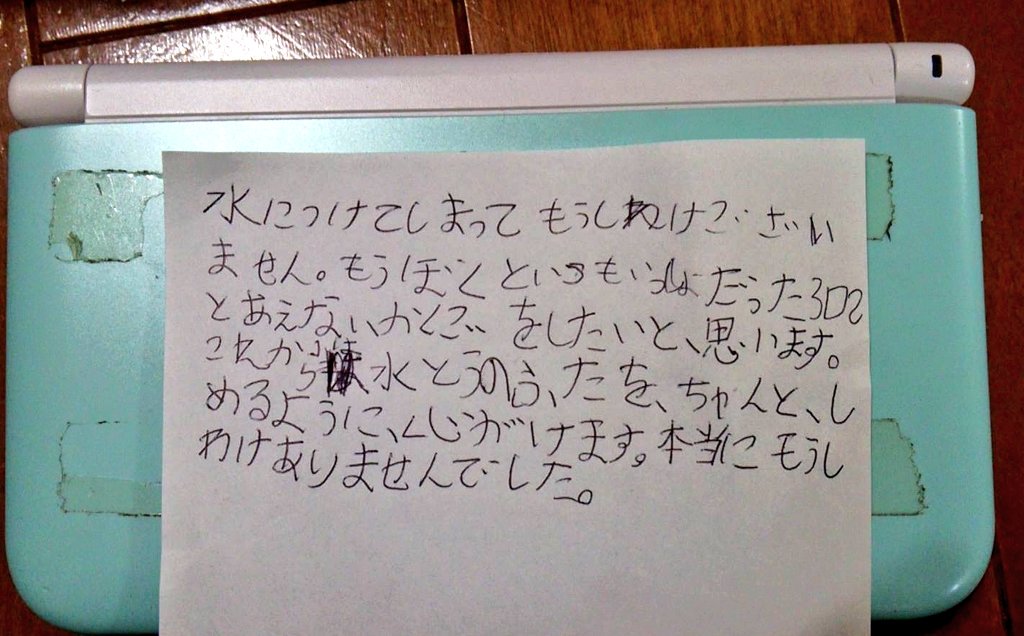 水につけてしまって もうしわけございい
ません。もうぼくといつもいっしょだった3DS
とあえないかくごをしたいと、思います。
これから水とうのふ、たを、ちゃんと、し
めるように、くじがけます。本当にもうし
わけありませんでした。